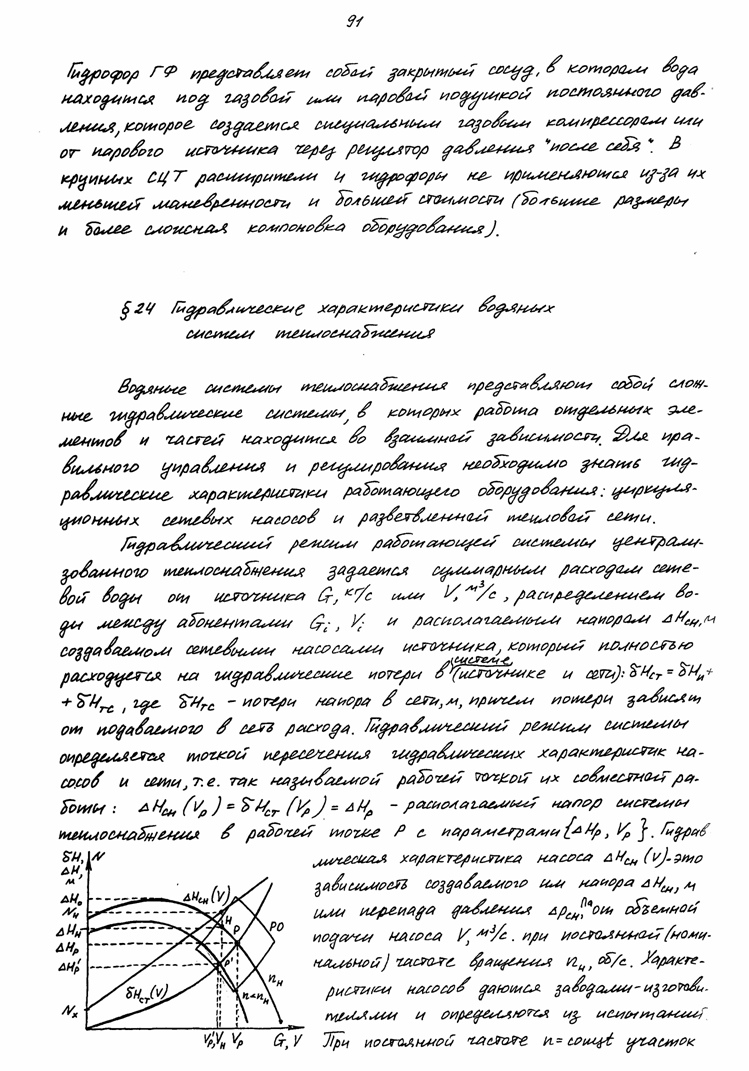 91
Гидрофор ГФ представляет собой закрытый сосуд, в котором вода
находится под газовой или паровой подушкой постоянного дав-
ления, которое создается специальным газовым компрессором или
от парового источника через регулятор давления "после себя". В
крупных СЦТ расширители и гидрофоры не применяются из-за их
меньшей маневренности и большей стоимости (большие размеры
и более сложная компоновка оборудования).
§ 24 Гидравлические характеристики водяных
систем теплоснабжения
Водяные системы теплоснабжения представляют собой слож-
ные гидравлические системы, в которых работа отдельных эле-
ментов и частей находится во взаимной зависимости. Для пра-
вильного управления и регулирования необходимо знать гид-
равлические характеристики работающего оборудования: циркуля-
ционных сетевых насосов и разветвленной тепловой сети.
Гидравлический режим работающей системы централи-
зованного теплоснабжения задается суммарным расходом сете-
вой воды от источника G, кг/с или V, м³/с, распределением во-
ды между абонентами Gi, Vi и располагаемым напором ΔHсн, м
создаваемом сетевыми насосами источника, который полностью
расходуется на гидравлические потери в системе (источнике и сети): δHст = δHи +
+ δHтс, где δHтс - потери напора в сети, м, причем потери зависят
от подаваемого в сеть расхода. Гидравлический режим системы
определяется точкой пересечения гидравлических характеристик на-
сосов и сети, т.е. так называемой рабочей точкой их совместной ра-
боты: ΔHсн (Vр) = δHст (Vр) = ΔHр - располагаемый напор системы
теплоснабжения в рабочей точке Р с параметрами {ΔHр, Vр}. Гидрав
лическая характеристика насоса ΔHсн (V) - это
зависимость создаваемого им напора ΔHсн, м
или перепада давления Δрсн, Па от объемной
подачи насоса V, м³/с. при постоянной (номи-
нальной) частоте вращения nн, об/с. Характе-
ристики насосов даются заводами-изготови-
телями и определяются из испытаний.
При постоянной частоте n = const участок
δH, N
ΔH,
м
ΔHо
Nн
ΔHн
ΔHр
ΔHр'
Nх
ΔHсн (V)
Н
Р
РО
Р'
nн
n<nн
δHст (V)
Vр' Vн Vр G, V